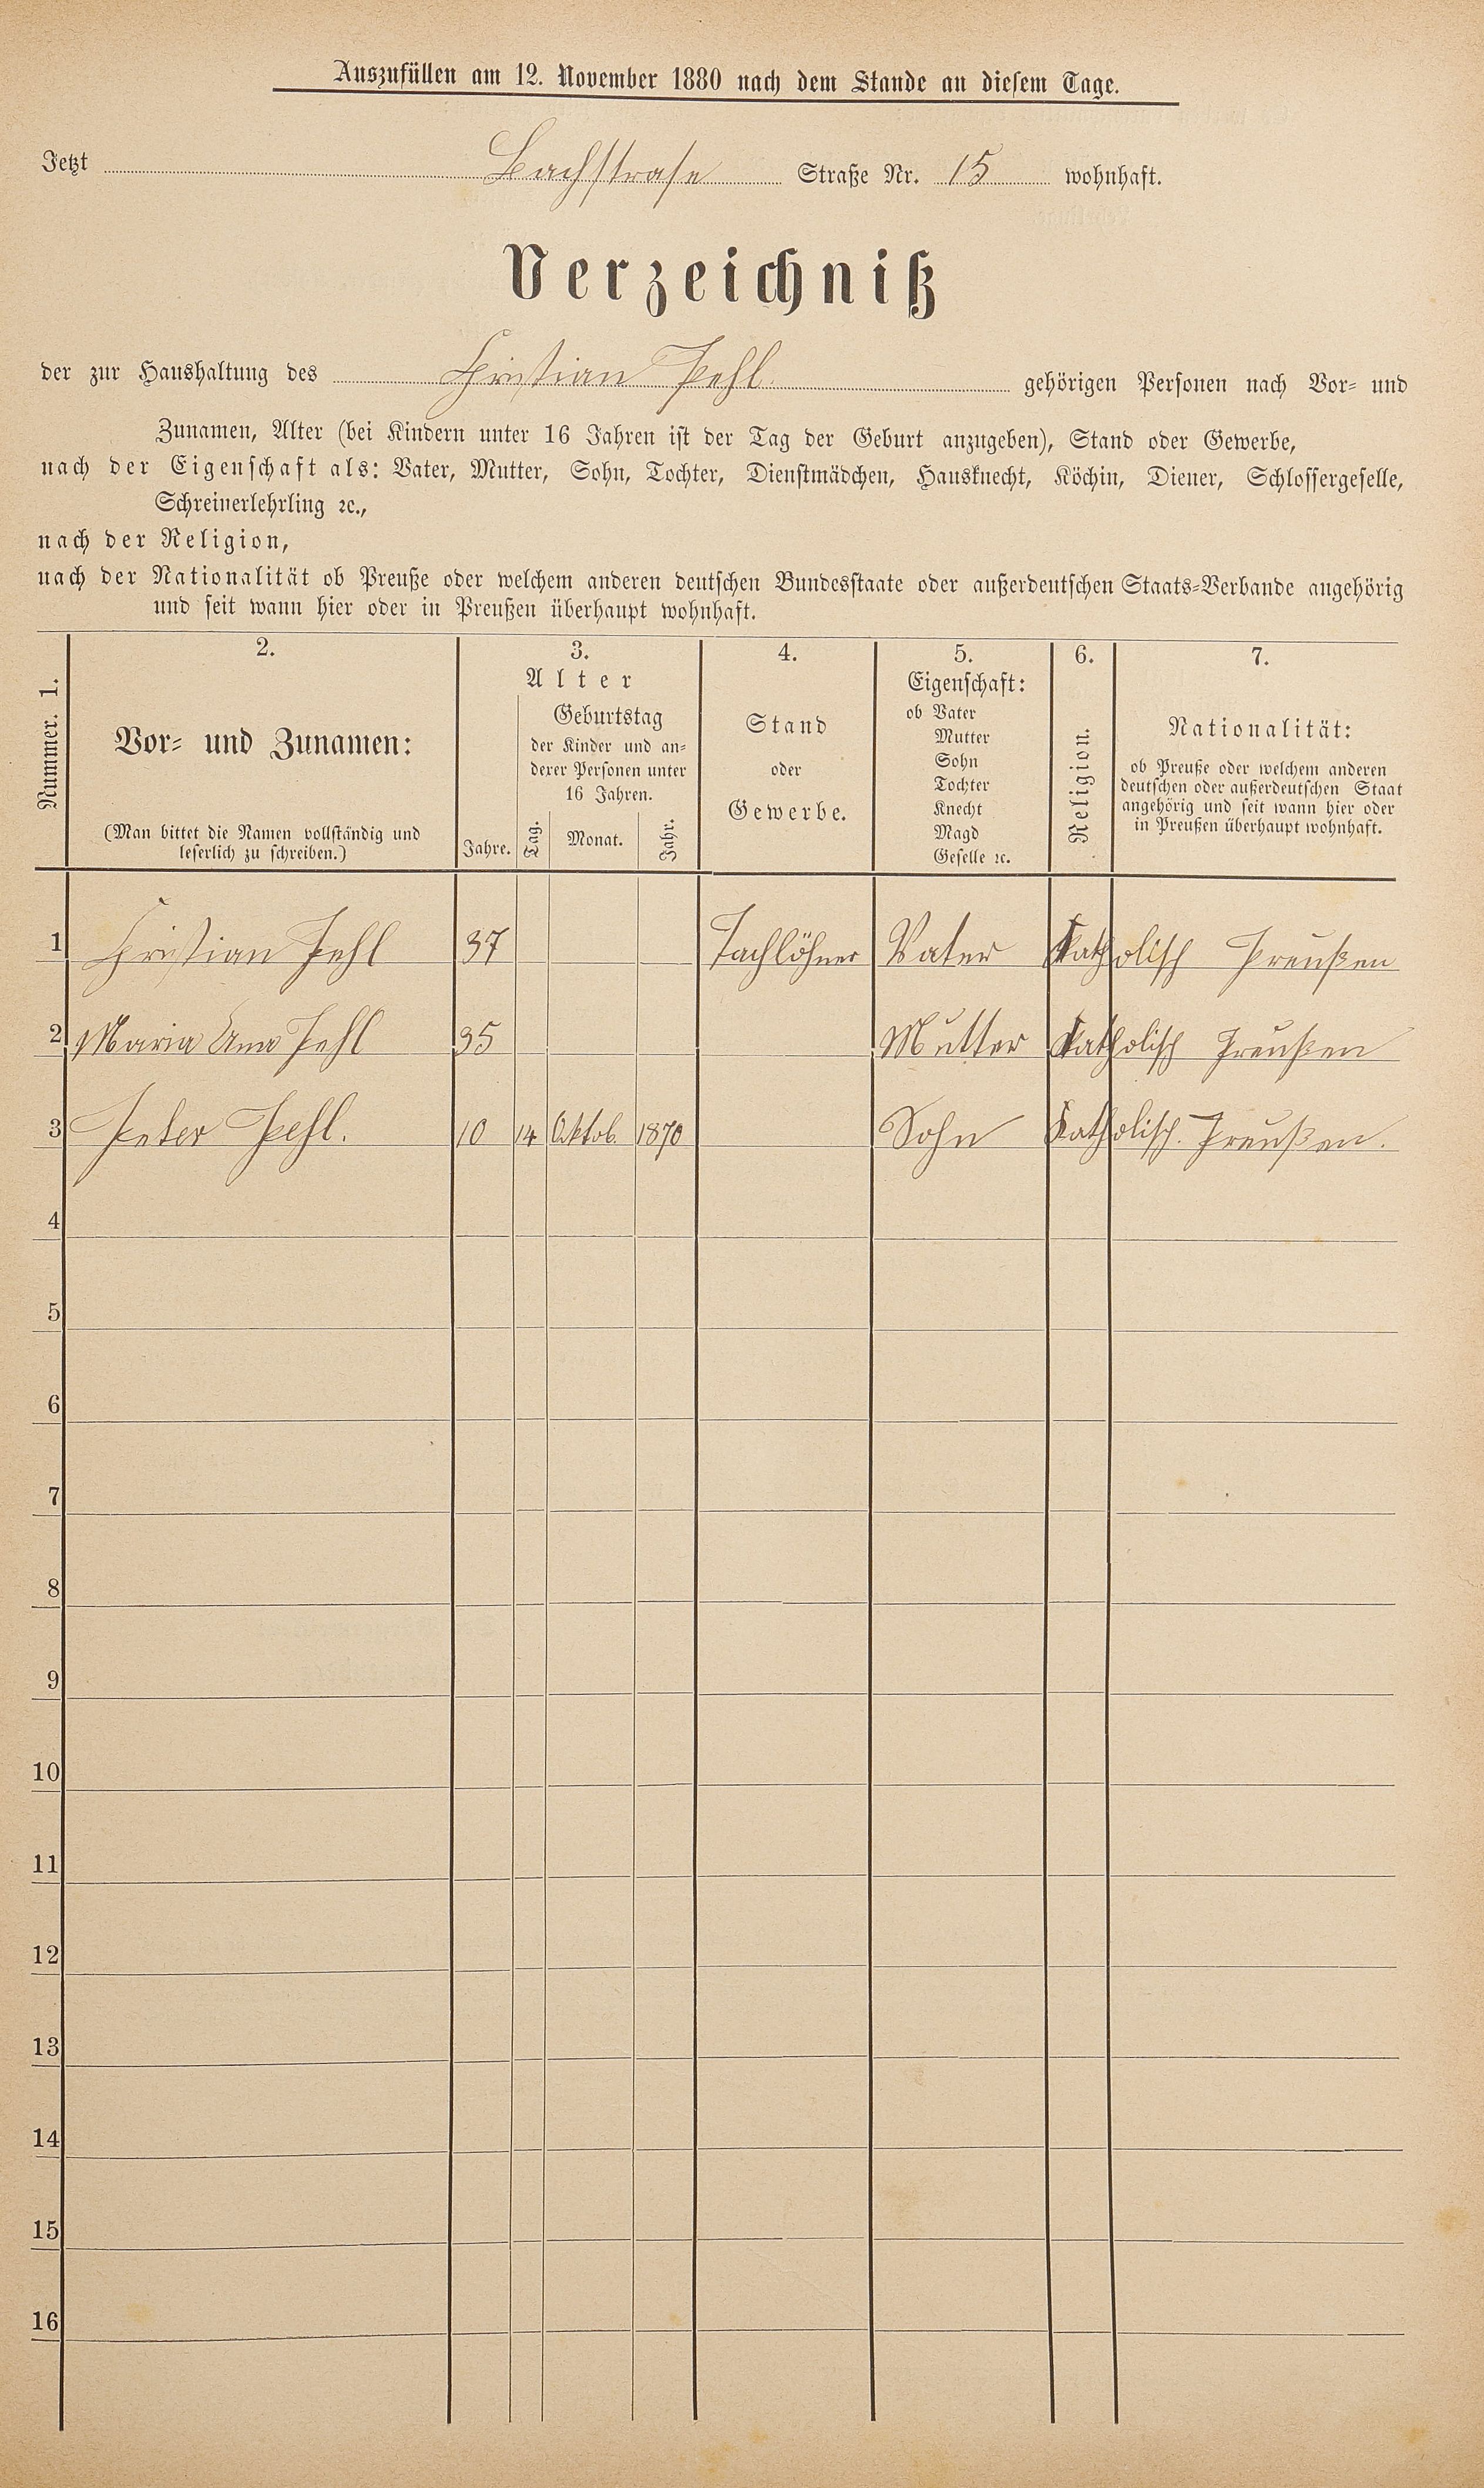 Auszufüllen am 12. November 1880 nach dem Stande an diesem Tage.
Jetzt Bachstrase Straße Nr. 15 wohnhaft.
Verzeichniß
der zur Haushaltung des Christian Pehl. gehörigen Personen nach Vor- und
Zunamen, Alter (bei Kindern unter 16 Jahren ist der Tag der Geburt anzugeben), Stand oder Gewerbe,
nach der Eigenschaft als: Vater, Mutter, Sohn, Tochter, Dienstmädchen, Hausknecht, Köchin, Diener, Schlossergeselle,
Schreinerlehrling ꝛc.,
nach der Religion,
nach der Nationalität ob Preuße oder welchem anderen deutschen Bundesstaate oder außerdeutschen Staats-Verbande angehörig
und seit wann hier oder in Preußen überhaupt wohnhaft.
Nummer. 1.
2.
Vor- und Zunamen:
(Man bittet die Namen vollständig und
leserlich zu schreiben.)
3.
Alter
Jahre.
Geburtstag
der Kinder und an-
derer Personen unter
16 Jahren.
Tag. Monat. Jahr.
4.
Stand
oder
Gewerbe.
5.
Eigenschaft:
ob Vater
Mutter
Sohn
Tochter
Knecht
Magd
Geselle ꝛc.
6.
Religion.
7.
Nationalität:
ob Preuße oder welchem anderen
deutschen oder außerdeutschen Staat
angehörig und seit wann hier oder
in Preußen überhaupt wohnhaft.
1 Christian Pehl 37 Tachlöhner Vater Katholisch Preußen
2 Maria Anna Pehl 35 Mutter Katholisch Preußen
3 Peter Pehl. 10 14 Oktob. 1870 Sohn Katholisch. Preußen.
4
5
6
7
8
9
10
11
12
13
14
15
16